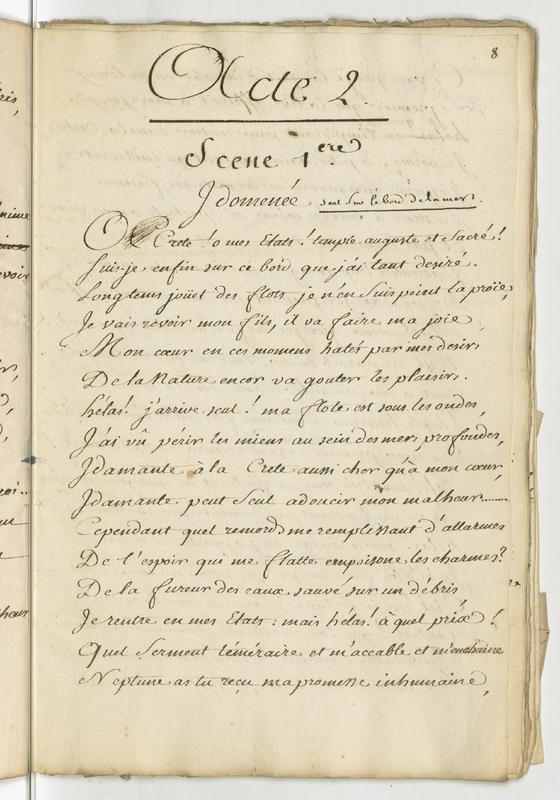 8
Acte 2
Scene 1ere
Jdomenée seul sur le bord de la mer.
O Crete! o mes Etats! temple auguste et Sacré!
Suis-je enfin sur ce bord que j'ai tant desiré.
Longtems joüet des flots je n'en suis point la proïe,
Je vais revoir mon fils, il va faire ma joie
Mon cœur en ces momens hatés par mes desirs
De la Nature encor va gouter les plaisirs.
hélas! j'arrive seul! ma flote est sous les ondes,
J'ai vû périr les miens au sein des mers profondes,
Jdamante à la Crete aussi cher qu'à mon cœur,
Jdamante peut seul adoucir mon malheur......
Cependant quel remords me remplissant d'allarmes
De l'espoir qui me flatte empoisone les charmes?
De la fureur des eaux sauvé sur un débris,
Je rentre en mes Etats: mais hélas! à quel prix!
Quel Serment téméraire et m'accable et m'enchaine
Neptune as tu reçu ma promesse inhumaine,